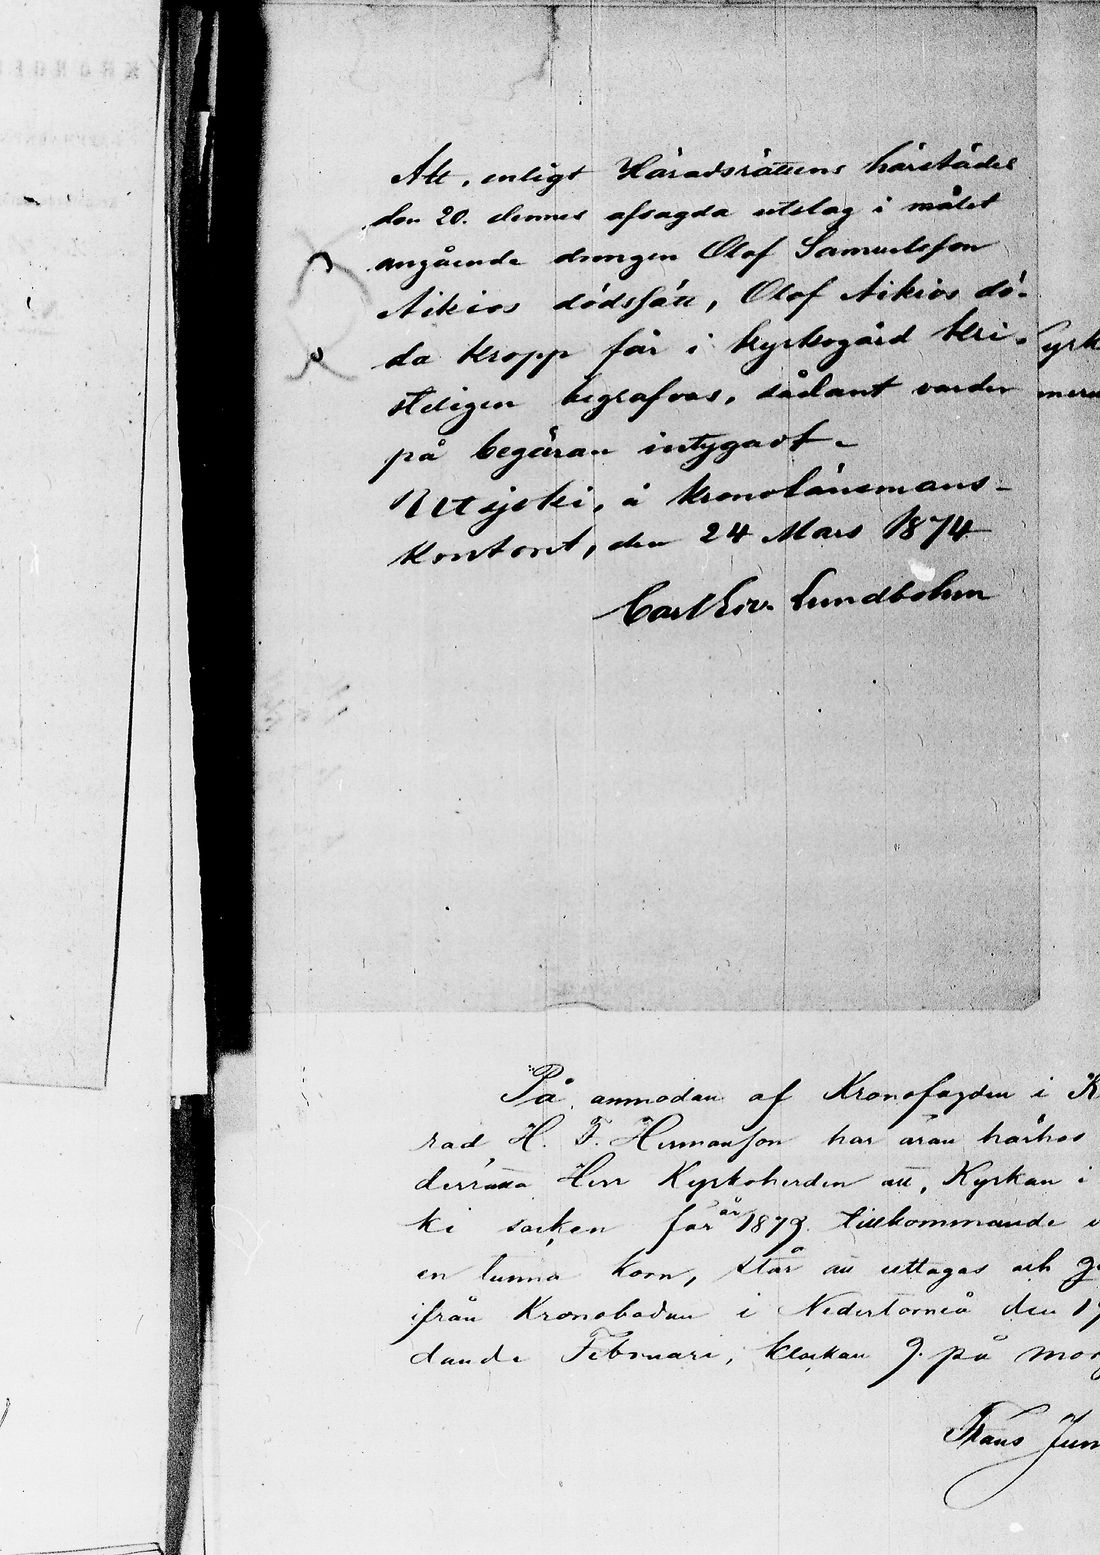 Att, enligt Häradsrättens härstädes
den 20. dennes afsagda utslag i målet
angående drengen Olof Samuelsson
Aikios dödssätt, Olof Aikios dö-
da kropp får i kyrkogård kri-
steligen begrafvas, sådant varder
på begäran intygadt.
Utsjoki, å Kronolänsmans-
kontoret, den 24 Mars 1874
Carl Lundbohm
På anmodan af Kronofogden i K
rad H. F. Hermanson har äran härhos
derrätta Herr Kyrkoherden att, Kyrkan i
ki socken för år 1879 tillkommande
en tunna Korn, står att uttagas och
ifrån Kronoboden i Nedertorneå den 19
dande Februari, klockan 9 på mor
Frans